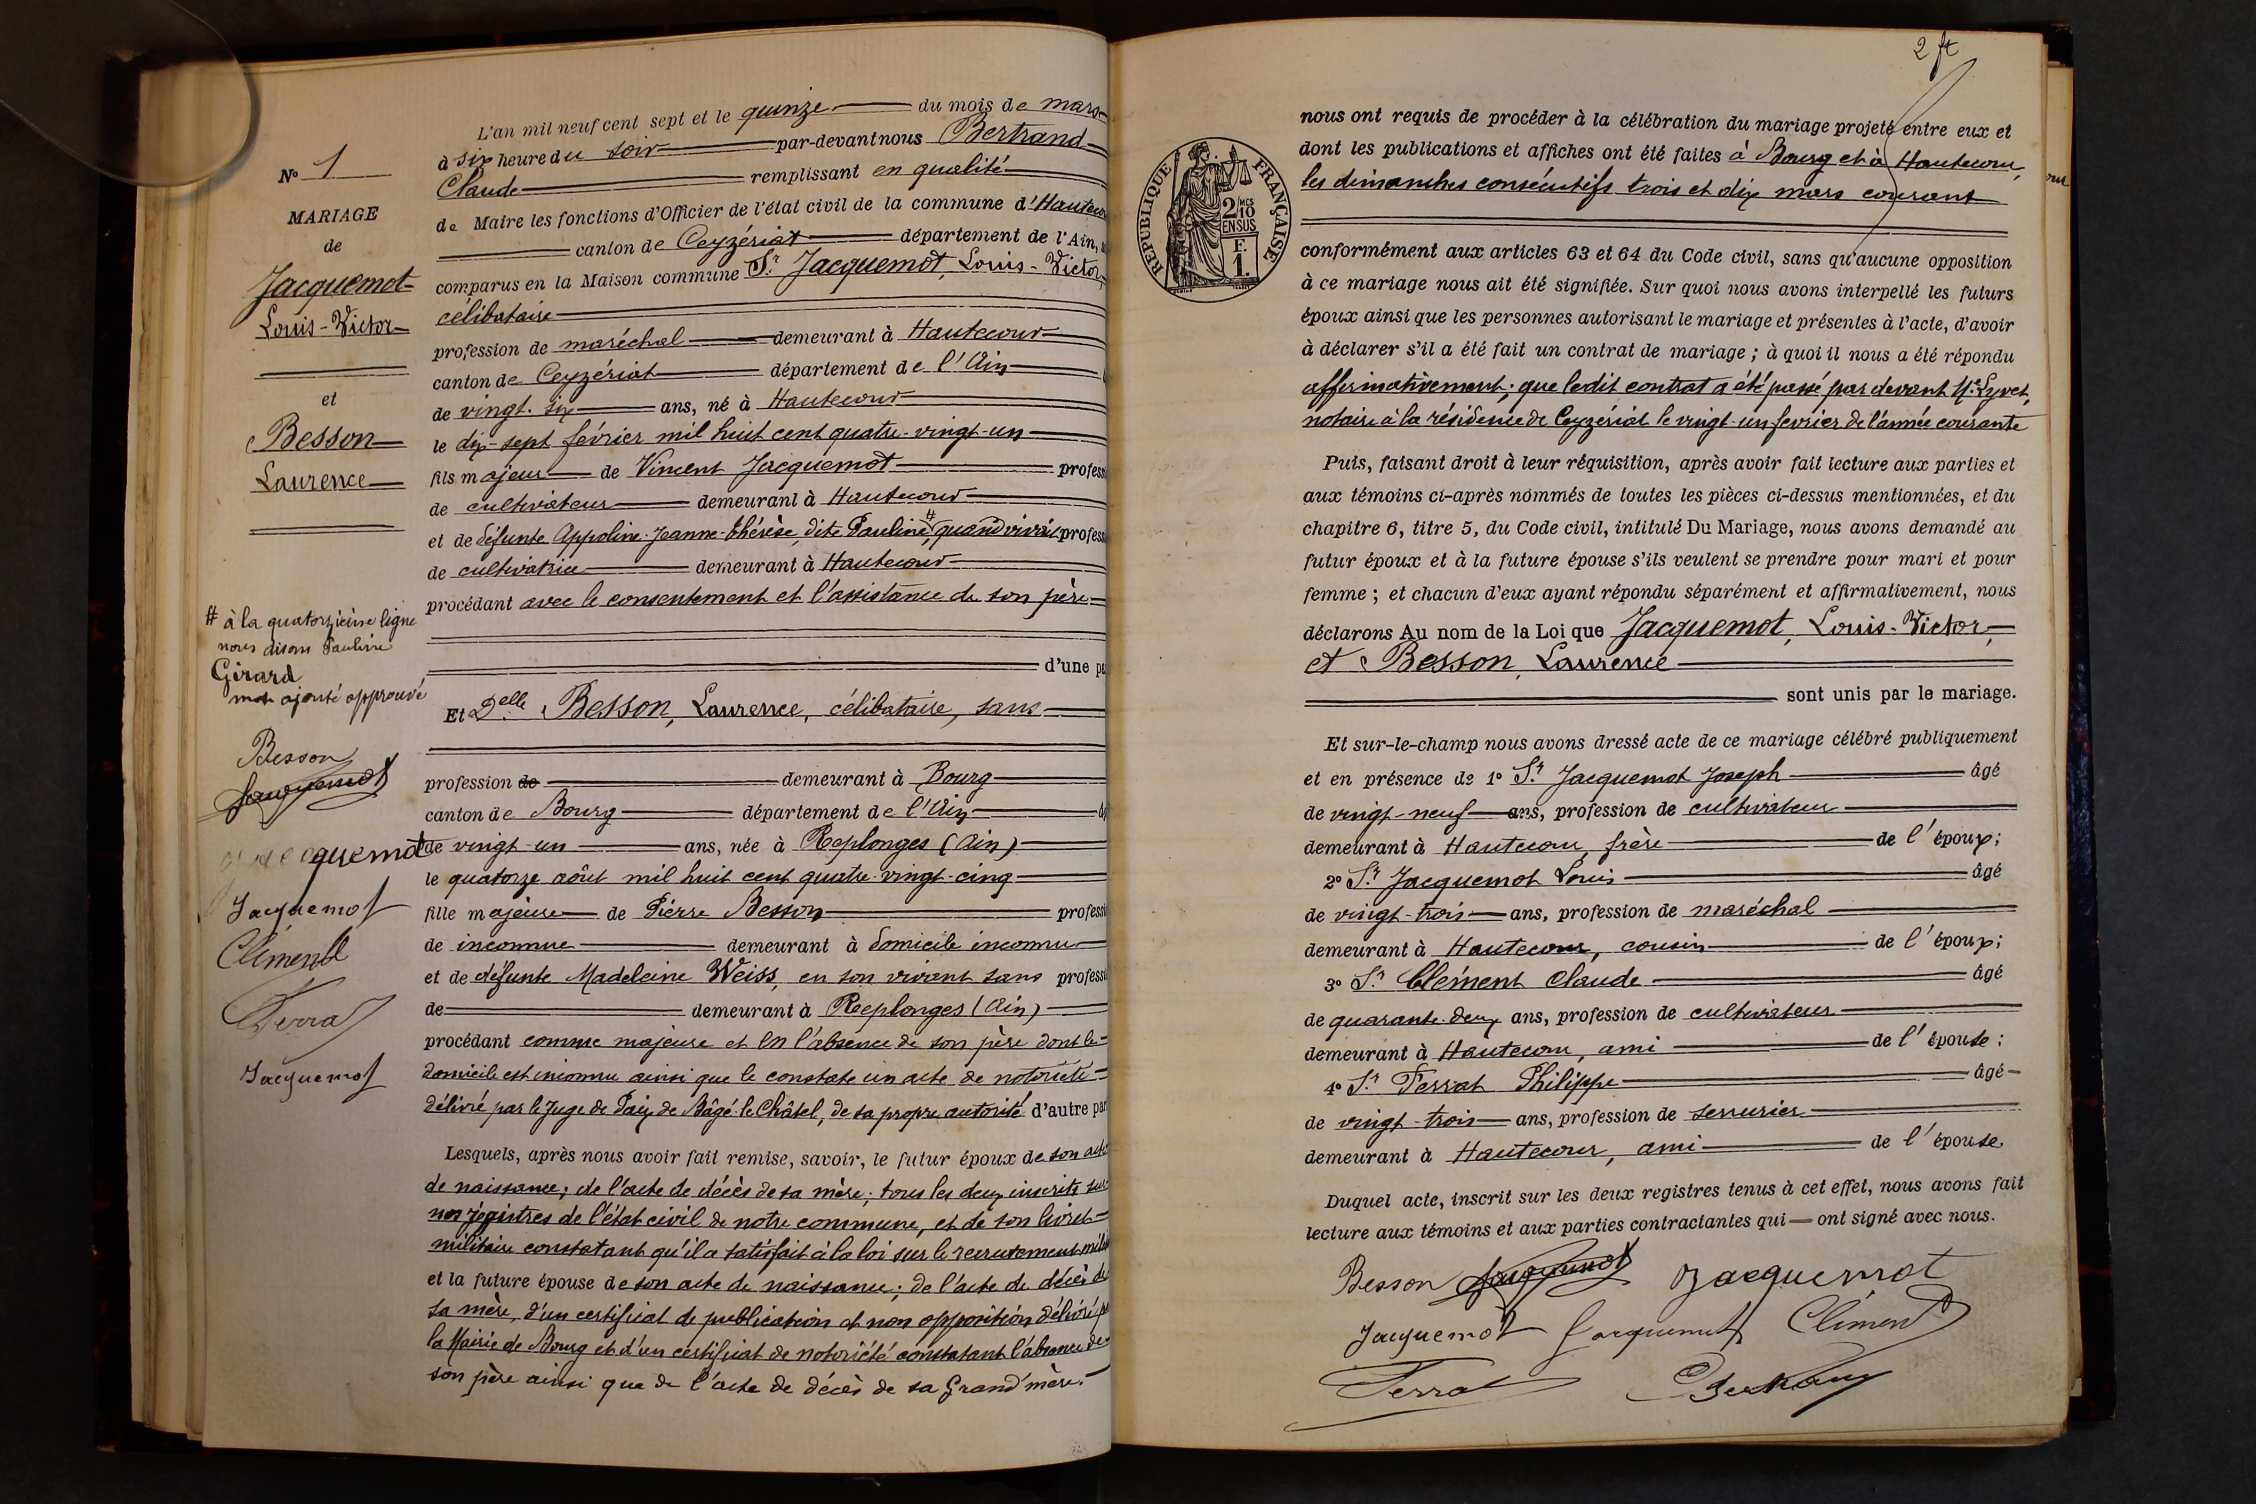 N° 1
MARIAGE
de
Jacquemot
Louis-Victor
et
Besson
Laurence
# à la quatorzième ligne
nous disons Pauline
Girard
mot ajouté approuvé
Besson
Jacquemot
Jacquemot
Jacquemot
Clément
Ferrat
Jacquemot
L'an mil neuf cent sept et le quinze du mois de mars
à six heure du soir par-devant nous Bertrand
Claude remplissant en qualité
de Maire les fonctions d'Officier de l'état civil de la commune d'Hauteco
canton de Ceyzériat département de l'Ain,
comparus en la Maison commune Sr Jacquemot, Louis-Victor,
célibataire
profession de maréchal demeurant à Hautecour
canton de Ceyzériat département de l'Ain
de vingt-six ans, né à Hautecour
le dix-sept février mil huit cent quatre-vingt-un
fils majeur de Vincent Jacquemot profess
de cultivateur demeurant à Hautecour
et de défunte Appoline-Jeanne-Thérèse, dite Pauline, # quand vivait profess
de cultivatrice demeurant à Hautecour
procédant avec le consentement et l'assistance de son père
d'une pa
Et Delle Besson, Laurence, célibataire, sans
profession de demeurant à Bourg
canton de Bourg département de l'Ain
de vingt-un ans, née à Replonges (Ain)
le quatorze août mil huit cent quatre-vingt-cinq
fille majeure de Pierre Besson professi
de inconnue demeurant à domicile inconnu
et de défunte Madeleine Weiss, en son vivant sans professi
de demeurant à Replonges (Ain)
procédant comme majeure et en l'absence de son père dont le
domicile est inconnu ainsi que le constate un acte de notoriété
délivré par le Juge de Paix de Bâgé-le-Châtel, de sa propre autorité d'autre par
Lesquels, après nous avoir fait remise, savoir, le futur époux de son acte
de naissance; de l'acte de décès de sa mère; tous les deux inscrits sur
nos régistres de l'état civil de notre commune, et de son livret
militaire constatant qu'il a satisfait à la loi sur le recrutement milit
et la future épouse de son acte de naissance; de l'acte de décès de
sa mère, d'un certificat de publication et non opposition délivré p
la Mairie de Bourg et d'un certificat de notoriété constatant l'absence de
son père ainsi que de l'acte de décès de sa Grand'mère.
2 ft
REPUBLIQUE FRANÇAISE
2 MES
10
EN SUS
F.
1.
nous ont requis de procéder à la célébration du mariage projeté entre eux et
dont les publications et affiches ont été faites à Bourg et à Hautecour,
les dimanches consécutifs trois et dix mars courant
conformément aux articles 63 et 64 du Code civil, sans qu'aucune opposition
à ce mariage nous ait été signifiée. Sur quoi nous avons interpellé les futurs
époux ainsi que les personnes autorisant le mariage et présentes à l'acte, d'avoir
à déclarer s'il a été fait un contrat de mariage; à quoi il nous a été répondu
affirmativement; que ledit contrat a été passé par devant Me Lyvet,
notaire à la résidence de Ceyzériat le vingt-un fevrier de l'année courante
Puis, faisant droit à leur réquisition, après avoir fait lecture aux parties et
aux témoins ci-après nommés de toutes les pièces ci-dessus mentionnées, et du
chapitre 6, titre 5, du Code civil, intitulé Du Mariage, nous avons demandé au
futur époux et à la future épouse s'ils veulent se prendre pour mari et pour
femme; et chacun d'eux ayant répondu séparément et affirmativement, nous
déclarons Au nom de la Loi que Jacquemot, Louis-Victor,
et Besson, Laurence
sont unis par le mariage.
Et sur-le-champ nous avons dressé acte de ce mariage célébré publiquement
et en présence de 1° Sr Jacquemot Joseph âgé
de vingt-neuf ans, profession de cultivateur
demeurant à Hautecour, frère de l'époux;
2° Sr Jacquemot Louis âgé
de vingt-trois ans, profession de maréchal
demeurant à Hautecour, cousin de l'époux;
3° Sr Clément Claude âgé
de quarante-deux ans, profession de cultivateur
demeurant à Hautecour, ami de l'épouse;
4° Sr Ferrat Philippe âgé
de vingt-trois ans, profession de serrurier
demeurant à Hautecour, ami de l'épouse.
Duquel acte, inscrit sur les deux registres tenus à cet effet, nous avons fait
lecture aux témoins et aux parties contractantes qui ont signé avec nous.
Besson Jacquemot Jacquemot
Jacquemot Jacquemot Clément
Ferrat CBertrand